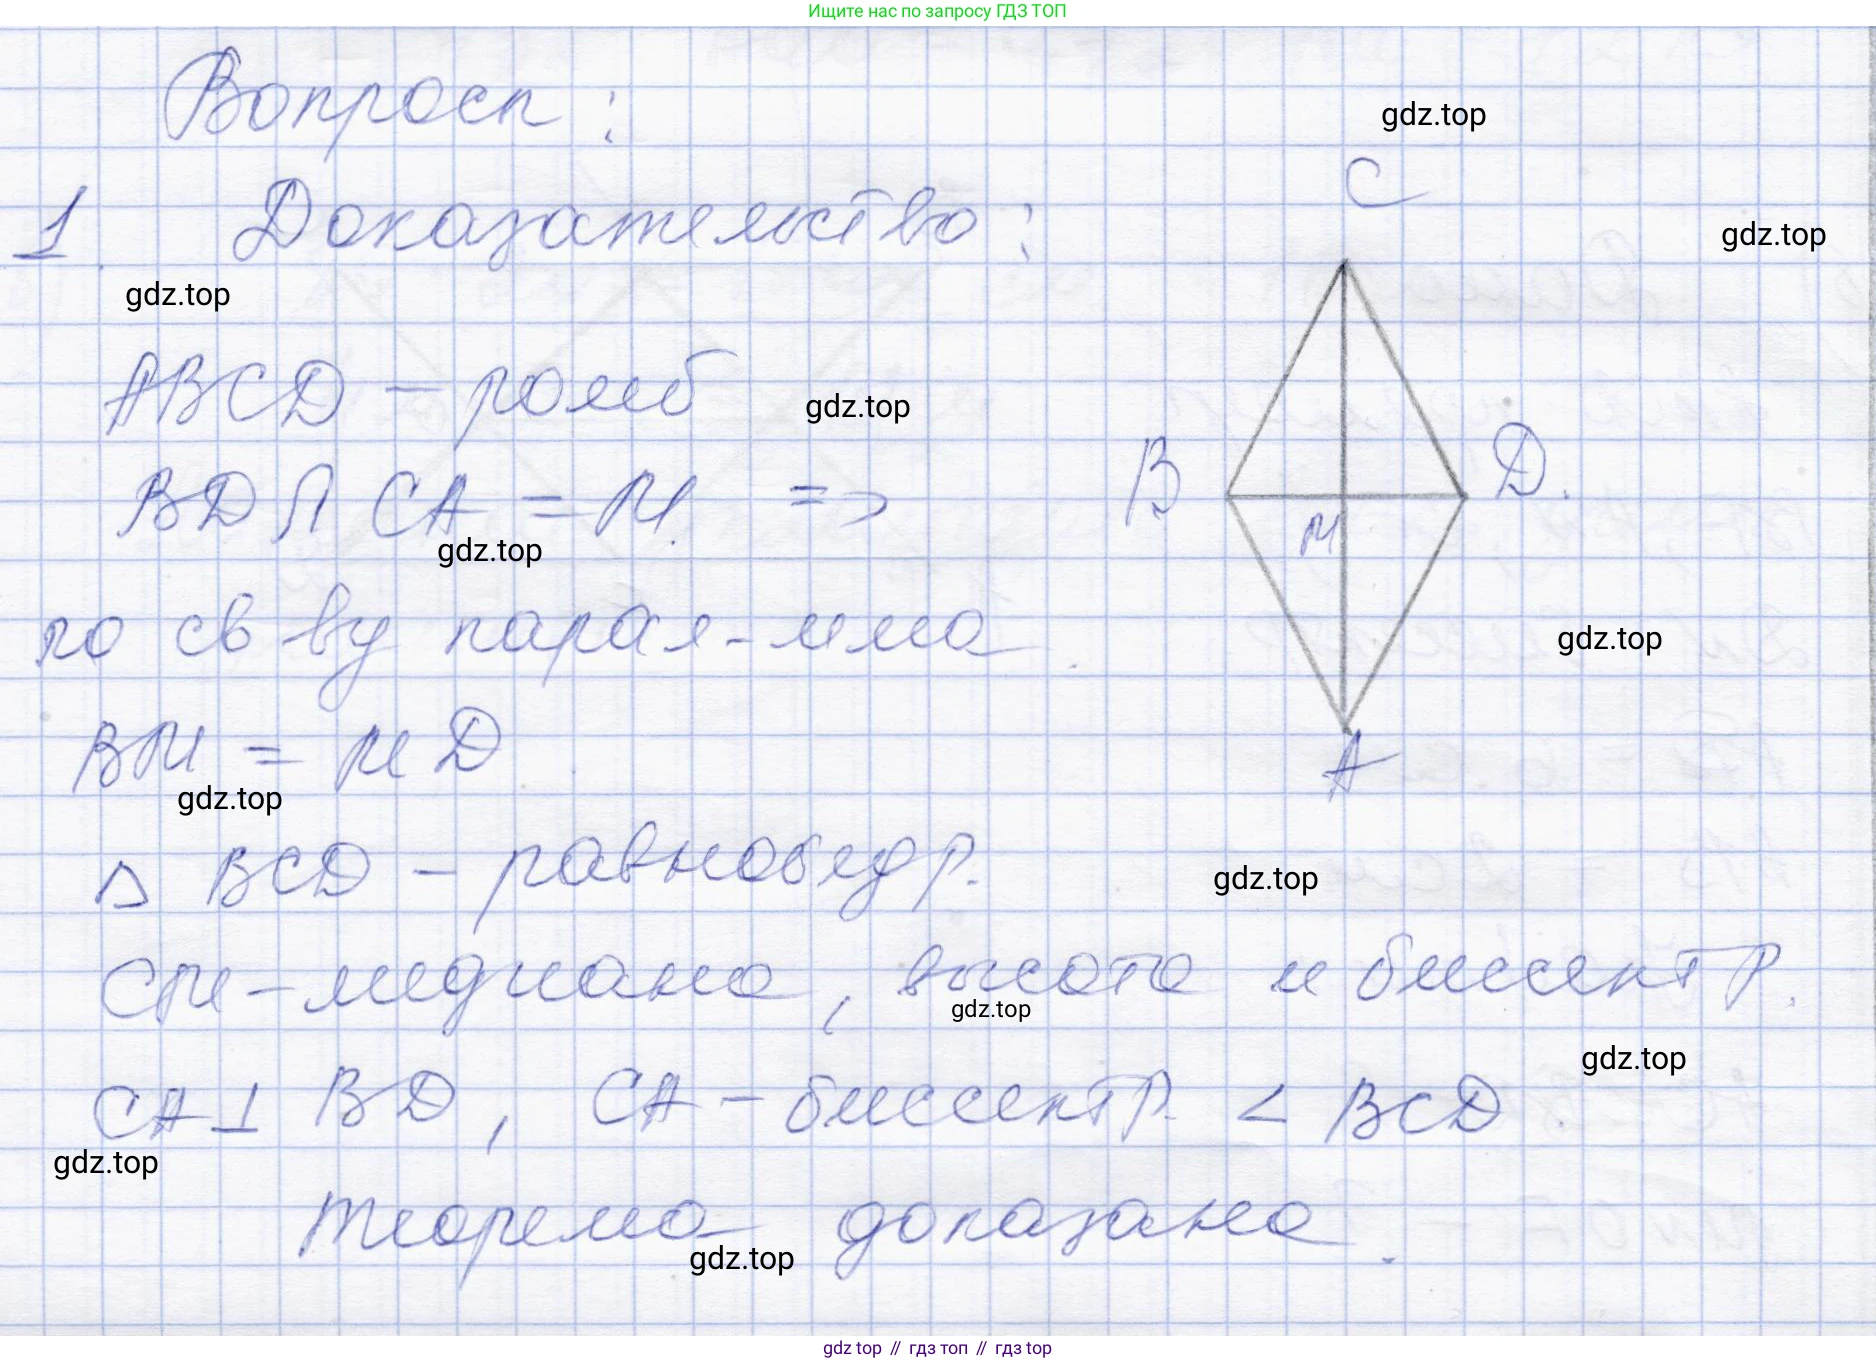 Ищите нас по запросу ГДЗ ТОП
Вопросы:
gdz.top
C
1. Доказательство:
gdz.top
gdz.top
ABCD - ромб
gdz.top
BD ∩ CA = M. =>
B
D.
M
gdz.top
по св-ву парал-мма.
gdz.top
BM = MD
A
gdz.top
Δ BCD - равнобедр.
gdz.top
CM - медиана, высота и биссектр.
gdz.top
gdz.top
CA ⊥ BD, CA - биссектр. < BCD.
gdz.top
Теорема доказана.
gdz.top
gdz top // гдз топ // гдз top